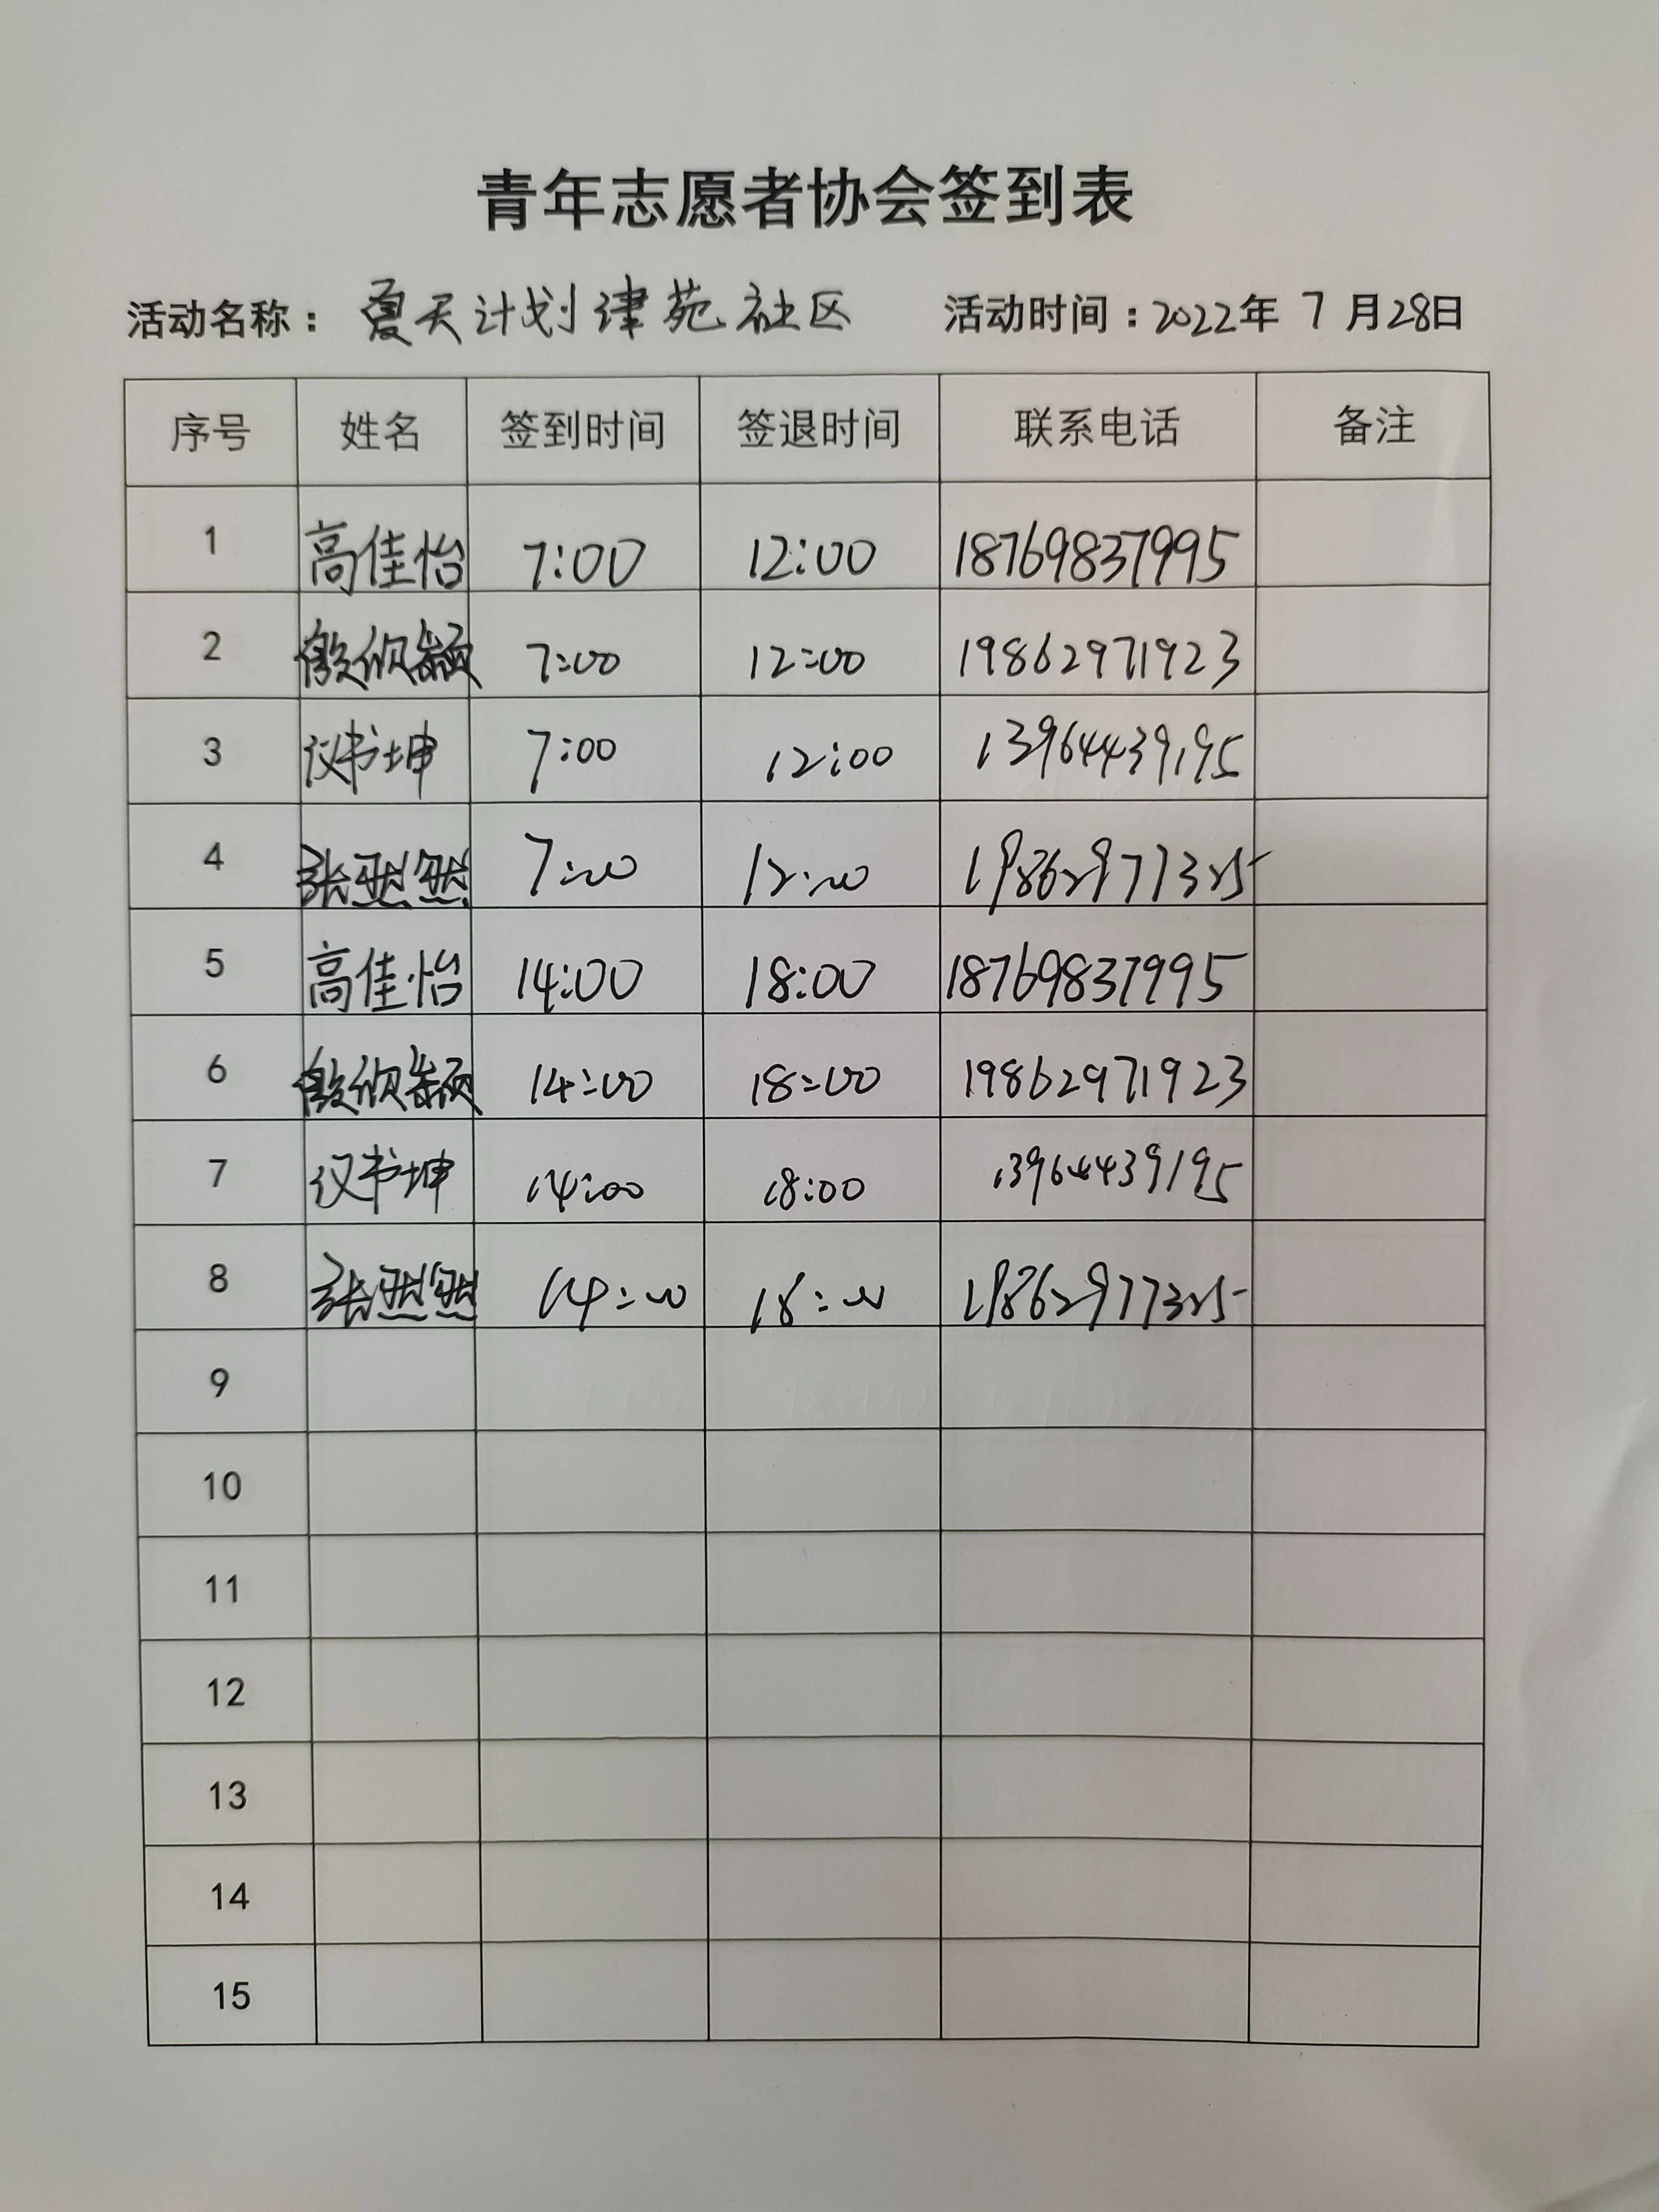 青年志愿者协会签到表
活动名称：夏天计划津苑社区 活动时间：2022年7月28日
序号 姓名 签到时间 签退时间 联系电话 备注
1 高佳怡 7:00 12:00 18769837995
2 7:00 12:00 19862971923
3 仪书坤 7:00 12:00 13964439195
4 张然然 7:00 12:00 19862977325
5 高佳怡 14:00 18:00 18769837995
6 14:00 18:00 19862971923
7 仪书坤 14:00 18:00 13964439195
8 张然然 14:00 18:00 19862977325
9
10
11
12
13
14
15